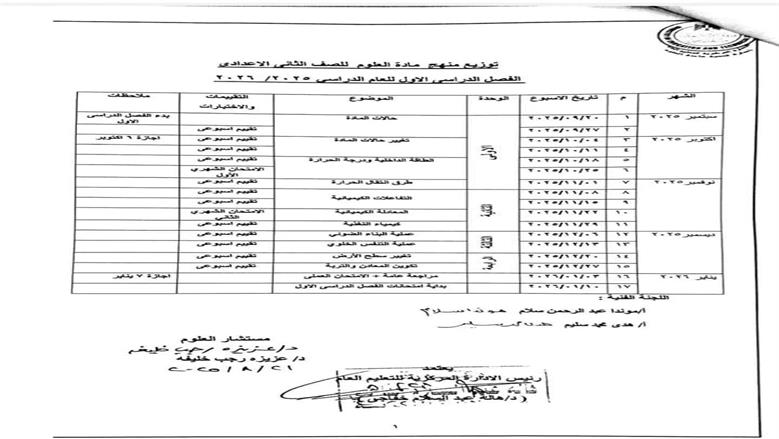 توزيع منهج مادة العلوم للصف الثاني الاعدادى
الفصل الدراسى الاول للعام الدراسى ٢٠٢٥/ ٢٠٢٦
الشهر م تاريخ الاسبوع الوحدة الموضوع التقييمات والاختبارات ملاحظات
سبتمبر ٢٠٢٥ ١ ٢٠٢٥/٠٩/٢٠ الاولى حالات المادة بدء الفصل الدراسى الاول
٢ ٢٠٢٥/٠٩/٢٧ تقييم اسبوعى
اكتوبر ٢٠٢٥ ٣ ٢٠٢٥/١٠/٠٤ تغيير حالات المادة تقييم اسبوعى اجازة ٦ اكتوبر
٤ ٢٠٢٥/١٠/١١ تقييم اسبوعى
٥ ٢٠٢٥/١٠/١٨ الطاقة الداخلية ودرجة الحرارة تقييم اسبوعى
٦ ٢٠٢٥/١٠/٢٥ الامتحان الشهرى الأول
نوفمبر ٢٠٢٥ ٧ ٢٠٢٥/١١/٠١ طرق انتقال الحرارة تقييم اسبوعى
٨ ٢٠٢٥/١١/٠٨ الثانية التفاعلات الكيميائية تقييم اسبوعى
٩ ٢٠٢٥/١١/١٥ تقييم اسبوعى
١٠ ٢٠٢٥/١١/٢٢ المعادلة الكيميائية الامتحان الشهرى الثانى
١١ ٢٠٢٥/١١/٢٩ كيمياء التغذية تقييم اسبوعى
ديسمبر ٢٠٢٥ ١٢ ٢٠٢٥/١٢/٠٦ الثالثة عملية البناء الضوئى تقييم اسبوعى
١٣ ٢٠٢٥/١٢/١٣ عملية التنفس الخلوى تقييم اسبوعى
١٤ ٢٠٢٥/١٢/٢٠ الرابعة تغيير سطح الأرض تقييم اسبوعى
١٥ ٢٠٢٥/١٢/٢٧ تكوين المعادن والتربة تقييم اسبوعى
يناير ٢٠٢٦ ١٦ ٢٠٢٦/٠١/٠٣ مراجعة عامة + الامتحان العملى اجازة ٧ يناير
١٧ ٢٠٢٦/٠١/١٠ بداية امتحانات الفصل الدراسى الاول
اللجنة الفنية :
أ/موندا عبد الرحمن سلام
أ/ هدى محمد سليم
مستشار العلوم
د/عزيزه رجب خليفه
د/ عزيزه رجب خليفه
٢٠٢٥/٨/٢١
يعتمد
رئيس الادارة المركزية للتعليم العام
(د/هالة عبد السلام خفاجى)
١